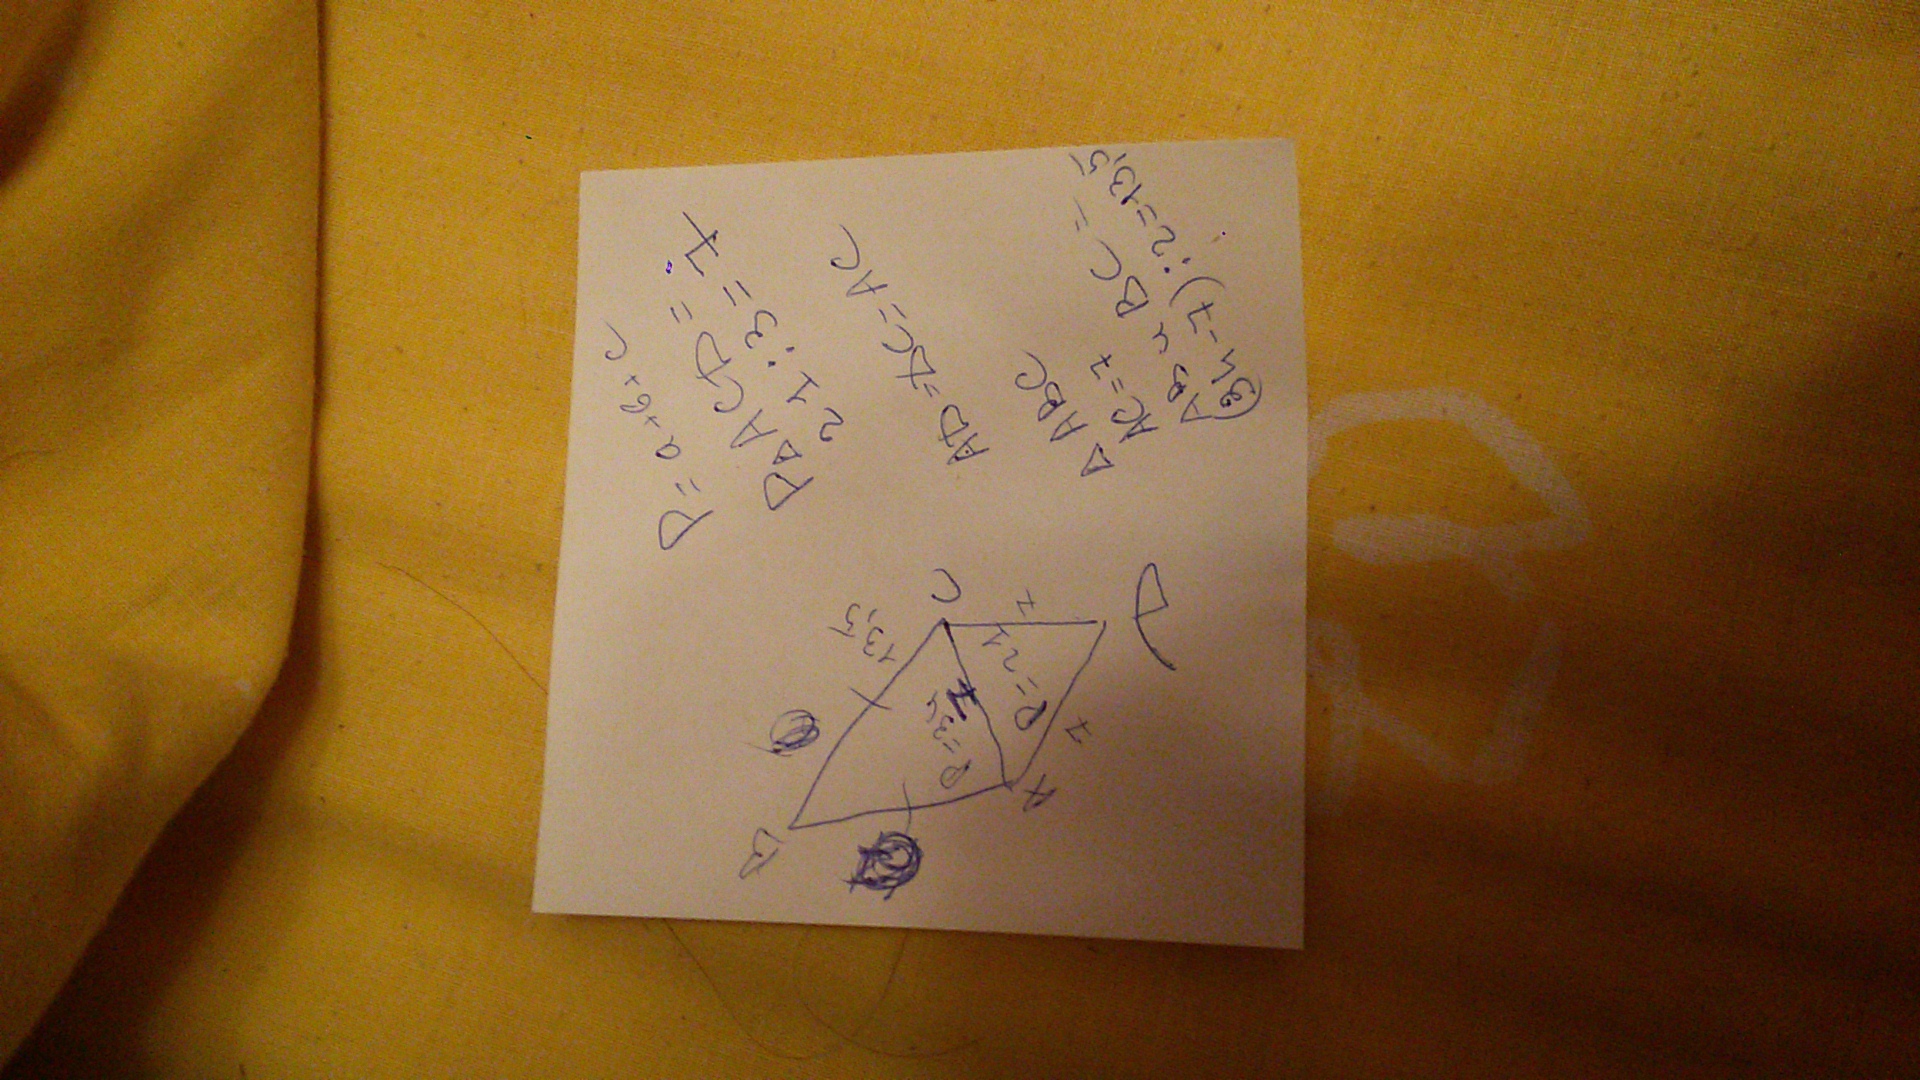 P = a+b+c
P△ACD =
21 : 3 = 7
AD = DC = AC
△ ABC
AC = 7
AB и BC =
(34-7) : 2 = 13,5
C
D
13,5
7
P=21
7
P=34
7
A
B